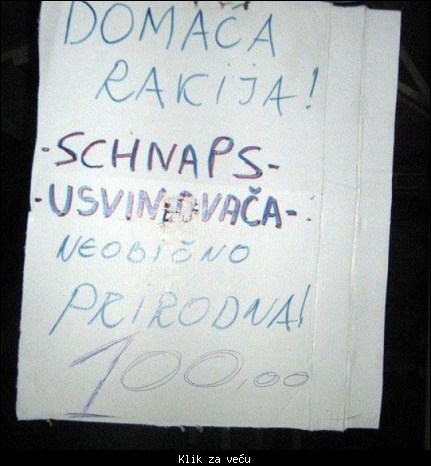 DOMAĆA
RAKIJA!
-SCHNAPS-
-USVINJOVAČA-
NEOBIČNO
PRIRODNA!
100,00
Klik za veću